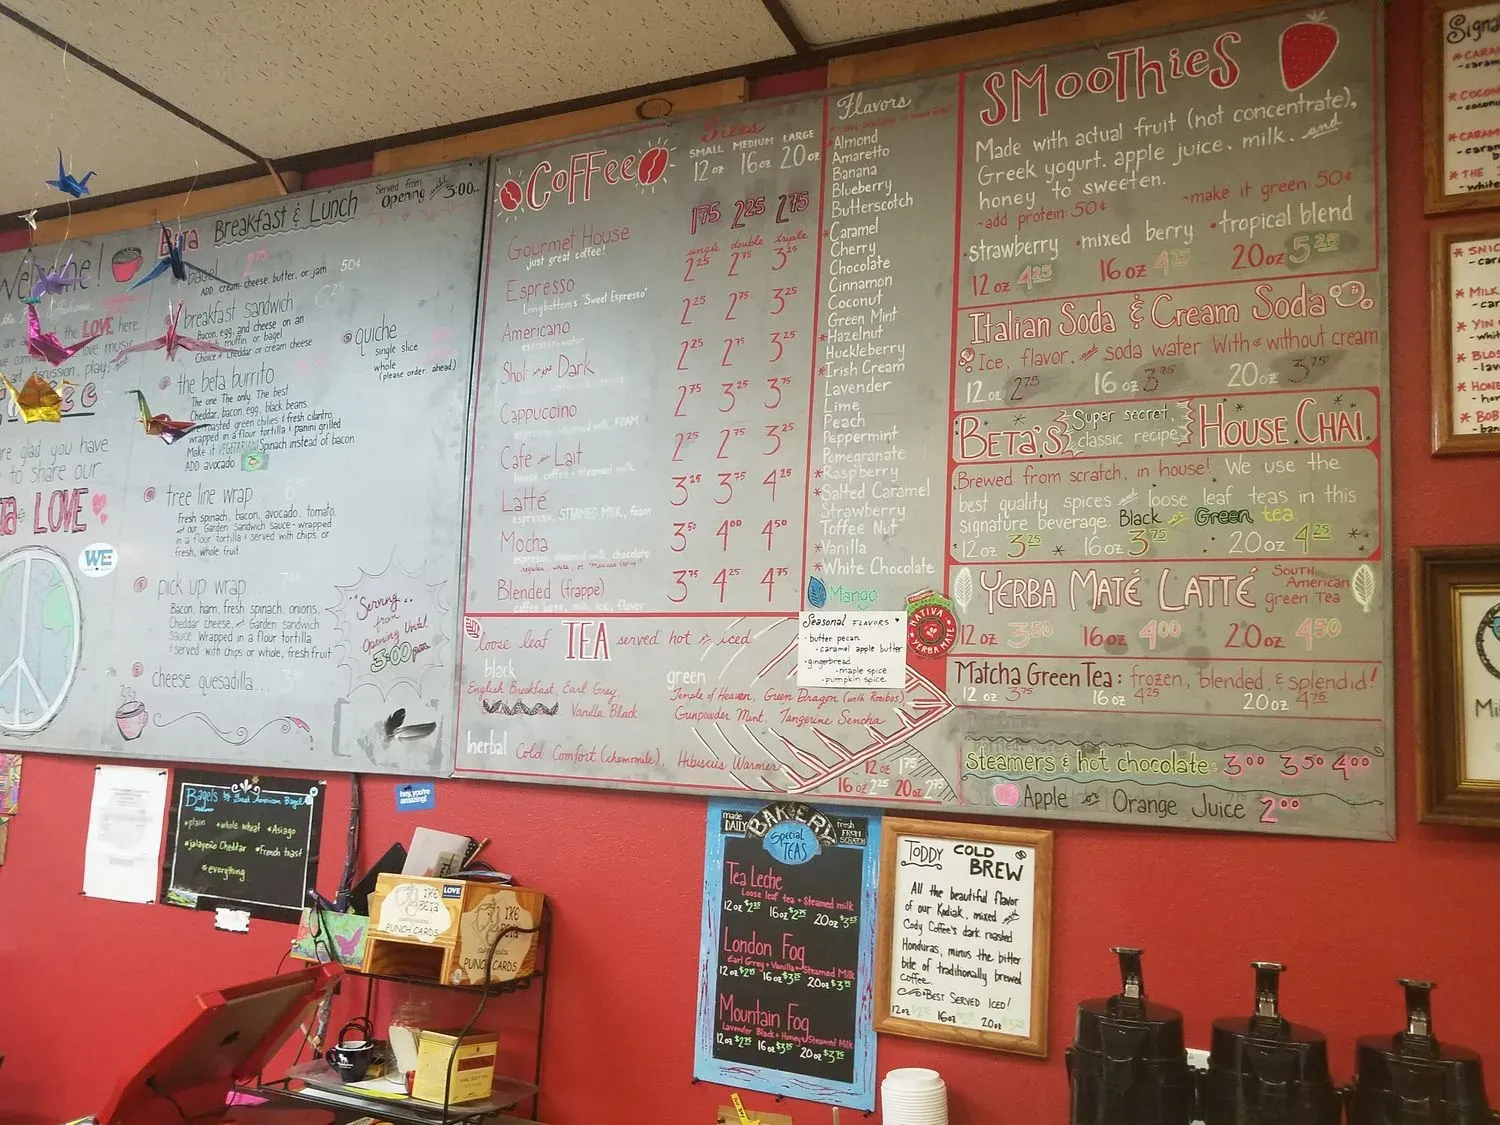 Welcome!
the LOVE here.
love music,
discussion, play,
glad you have
to share our
LOVE
WE
Beta Breakfast & Lunch
Served from
opening until
3:00
bagel 2.75
ADD cream cheese, butter, or jam 50¢
breakfast sandwich
Bacon, egg, and cheese on an
muffin or bagel
Choice of Cheddar or cream cheese
quiche
single slice
whole
(please order ahead)
the beta burrito
The one. The only. The best!
Cheddar, bacon, egg, black beans,
roasted green chilies & fresh cilantro
wrapped in a flour tortilla & panini grilled
Make it VEGETARIAN! Spinach instead of bacon
ADD avocado
tree line wrap
fresh spinach, bacon, avocado, tomato,
and our Garden Sandwich sauce - wrapped
in a flour tortilla & served with chips or
fresh, whole fruit
pick up wrap
Bacon, ham, fresh spinach, onions,
Cheddar cheese, and Garden sandwich
sauce. Wrapped in a flour tortilla
& served with chips or whole, fresh fruit
cheese quesadilla...
Serving
from
Opening Until
3:00pm
Coffee
Sizes
SMALL MEDIUM LARGE
12oz 16oz 20oz
Gourmet House 1.75 2.25 2.75
just great coffee!
single double triple
Espresso 2.25 2.75 3.25
Longbottom's "Sweet Espresso"
Americano 2.25 2.75 3.25
espresso + water
Shot in the Dark 2.25 2.75 3.25
Cappuccino 2.75 3.25 3.75
espresso, steamed milk, FOAM
Café au Lait 2.25 2.75 3.25
house coffee + steamed milk
Latté 3.25 3.75 4.25
espresso, STEAMED MILK, foam
Mocha 3.50 4.00 4.50
espresso, steamed milk, chocolate
regular, white, or Mexican (spicy!)
Blended (frappe) 3.75 4.25 4.75
coffee base, milk, ice, flavor
loose leaf TEA served hot or iced
black
English Breakfast, Earl Grey,
Vanilla Black
green
Temple of Heaven, Green Dragon (with Rooibos)
Gunpowder Mint, Tangerine Sencha
herbal
Cold Comfort (chamomile), Hibiscus Warmer
12oz 1.75
16oz 2.25 20oz 2.75
Flavors
Almond
Amaretto
Banana
Blueberry
Butterscotch
*Caramel
Cherry
Chocolate
Cinnamon
Coconut
Green Mint
*Hazelnut
Huckleberry
*Irish Cream
Lavender
Lime
Peach
Peppermint
Pomegranate
*Raspberry
*Salted Caramel
Strawberry
Toffee Nut
*Vanilla
*White Chocolate
Mango
Seasonal FLAVORS
· butter pecan
- caramel apple butter
· gingerbread
- maple spice
- pumpkin spice
NATIVA
YERBA MATE
SMooThieS
Made with actual fruit (not concentrate),
Greek yogurt, apple juice, milk, and
honey to sweeten.
~add protein: 50¢ ~make it green: 50¢
·strawberry ·mixed berry ·tropical blend
12oz 4.25 16oz 4.75 20oz 5.25
Italian Soda & Cream Soda
Ice, flavor, and soda water With or without cream
12oz 2.75 16oz 3.25 20oz 3.75
BETA'S Super secret,
classic recipe HOUSE CHAI
Brewed from scratch, in house! We use the
best quality spices and loose leaf teas in this
signature beverage. Black or Green tea
12oz 3.25 16oz 3.75 20oz 4.25
YERBA MATÉ LATTÉ SOUTH
American
Green Tea
12oz 3.50 16oz 4.00 20oz 4.50
Matcha Green Tea: frozen, blended, & splendid!
12oz 3.75 16oz 4.25 20oz 4.75
steamers & hot chocolate: 3.00 3.50 4.00
Apple or Orange Juice 2.00
Bagels by Great American Bagel
*plain *whole wheat *Asiago
*jalapeño Cheddar *French toast
*everything
hey, you're
amazing!
THE
Beta
PUNCH CARDS
LOVE
THE
Beta
PUNCH CARDS
made
DAILY
BAKERY
fresh
FROM
SCRATCH
Special
TEAS
Tea Leche
Loose leaf tea + Steamed milk
12oz $2.25 16oz $2.75 20oz $3.25
London Fog
Earl Grey + Vanilla + Steamed Milk
12oz $2.75 16oz $3.25 20oz $3.75
Mountain Fog
Lavender Black + Honey + Steamed Milk
12oz $2.75 16oz $3.25 20oz $3.75
TODDY COLD
BREW
All the beautiful flavor
of our Kodiak, mixed with
Cody Coffee's dark roasted
Honduras, minus the bitter
bite of traditionally brewed
coffee.
BEST SERVED ICED!
12oz 16oz 20oz